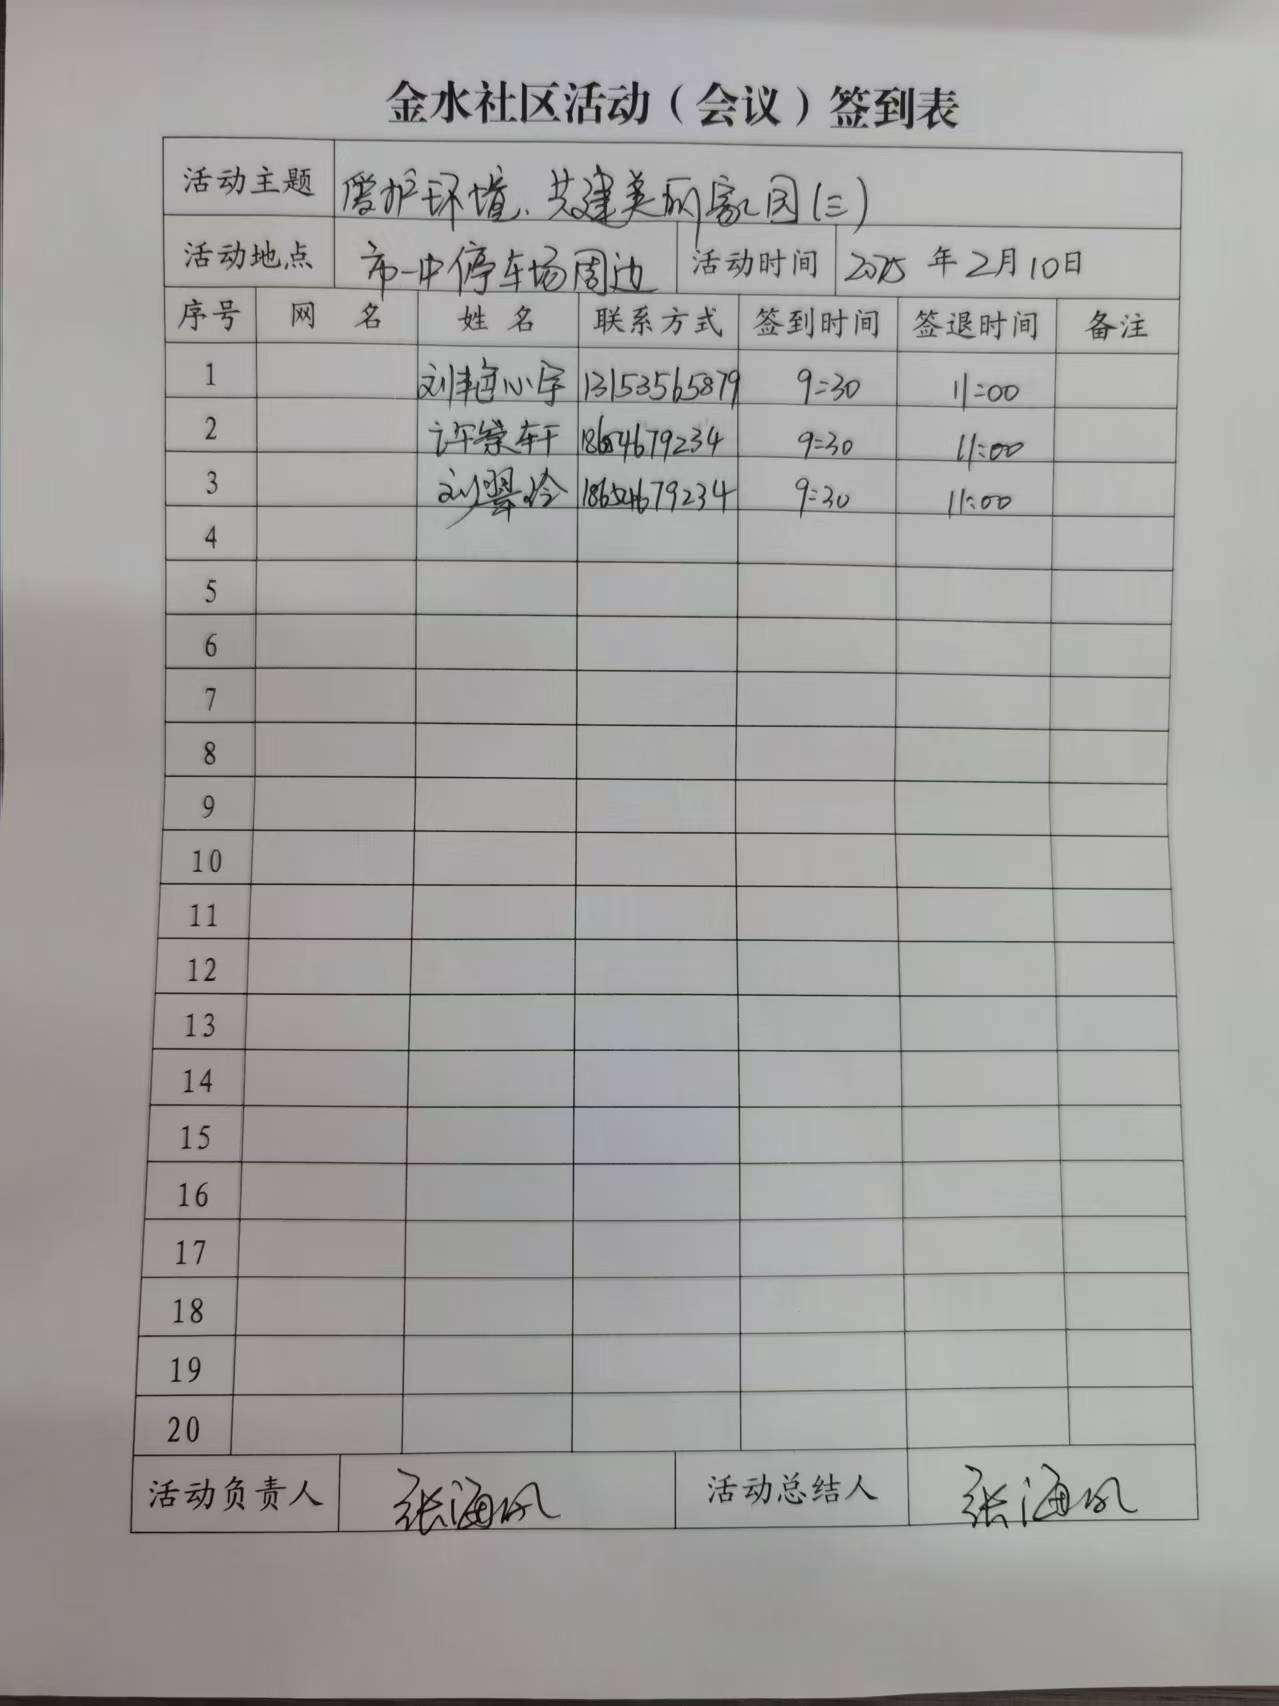 金水社区活动（会议）签到表
活动主题 爱护环境、共建美丽家园(三)
活动地点 市一中停车场周边 活动时间 2025 年 2月 10日
序号 网 名 姓 名 联系方式 签到时间 签退时间 备注
1 13153565879 9:30 11:00
2 许棠轩 18654679234 9:30 11:00
3 刘翠玲 18654679234 9:30 11:00
4
5
6
7
8
9
10
11
12
13
14
15
16
17
18
19
20
活动负责人 张海风 活动总结人 张海风